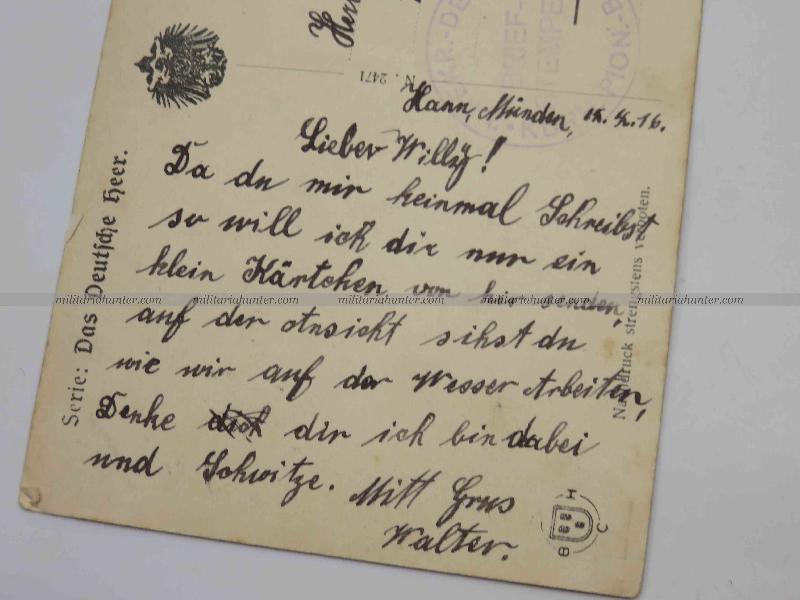 Herr
N. 2471
BRIEF-STEMPEL
PION.-B
Hann. Münden, 
Lieber Willy!
Da du mir keinmal Schreibst
so will ich dir nur ein
klein Kärtchen von hir senden,
militariahunter.com militariahunter.com militariahunter.com militariahunter.com militariahunter.com
auf der Ansicht sihst du
wie wir auf der Wesser Arbeiten,
Denke dir ich bin dabei
und Schwitze. Mitt Grus
Walter.
Serie: Das Deutsche Heer.
Nachdruck strengstens verboten.
H
B C